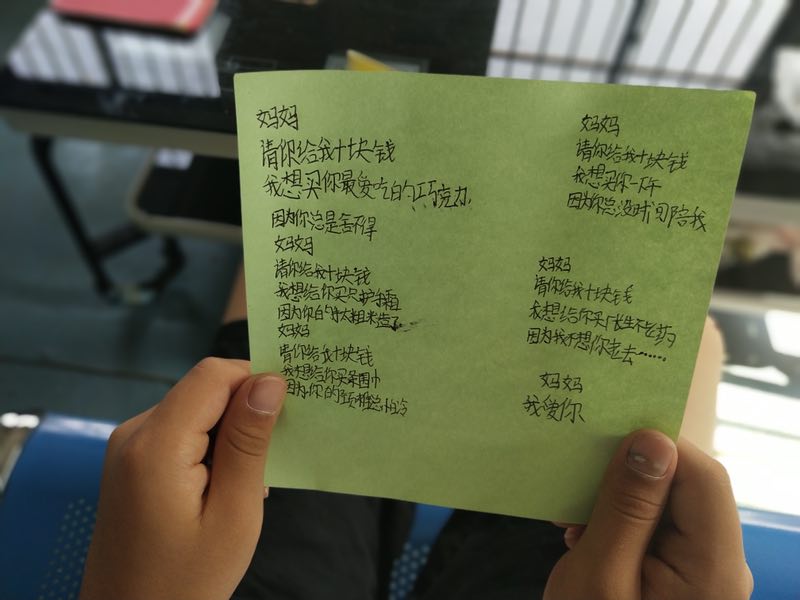 妈妈
请你给我十块钱
我想买你最爱吃的巧克力,
因为你总是舍不得
妈妈
请你给我十块钱
我想给你买护手霜
因为你的手太粗糙了
妈妈
请你给我十块钱
我想给你买条围巾
因为你的颈椎总怕冷
妈妈
请你给我十块钱
我想买你一下午
因为你总没时间陪我
妈妈
请你给我十块钱
我想给你买长生不老药
因为我不想你老去……
妈妈
我爱你